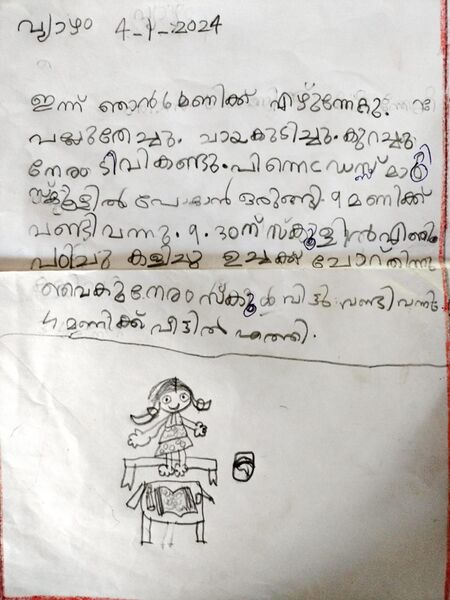 വ്യാഴം 4-1-2024
ഇന്ന് ഞാൻ 6 മണിക്ക് എഴുന്നേറ്റു.
പല്ലുതേച്ചു. ചായകുടിച്ചു. കുറച്ചു
നേരം ടിവി കണ്ടു. പിന്നെ ഡ്രസ്സ് മാറി
സ്കൂളിൽ പോകാൻ ഒരുങ്ങി. 9 മണിക്ക്
വണ്ടി വന്നു. 9.30ന് സ്കൂളിൽ എത്തി
പഠിച്ചു കളിച്ചു ഉച്ചക്ക് ചോറ് തിന്നു
വൈകുന്നേരം സ്കൂൾ വിട്ടു വണ്ടി വന്നു
4 മണിക്ക് വീട്ടിൽ എത്തി.